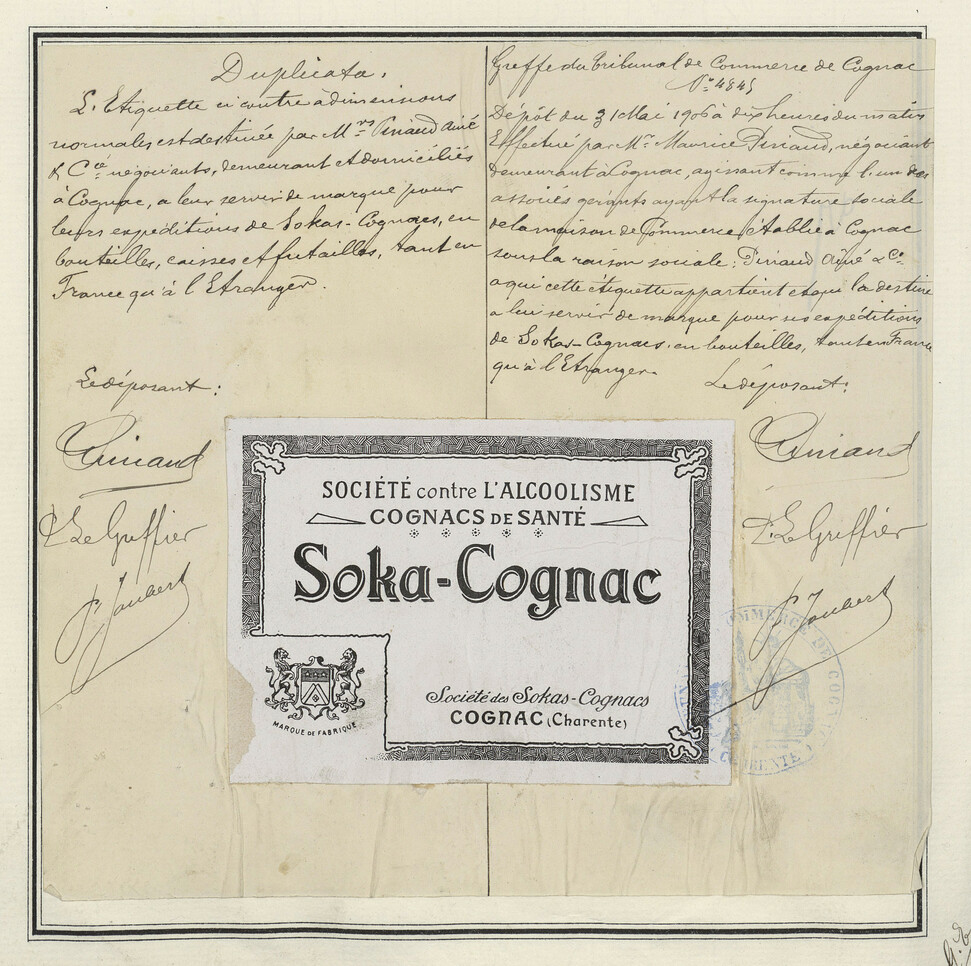 Duplicata.
L'Etiquette ci contre à dimensions
normales est destinée par Mrs Piniaud Ainé
& Cie négociants, demeurant et domiciliés
à Cognac, a leur servir de marque pour
leurs expéditions de Sokas-Cognacs, en
bouteilles, caisses et futailles, tant en
France qu'à l'Etranger.
Le déposant:
Piniaud
P. Le Greffier
J. Joubert
Greffe du Tribunal de Commerce de Cognac
No 4845
Dépôt du 31 Mai 1906 à dix heures du matin
Effectué par Mr Maurice Piniaud, négociant
demeurant à Cognac, agissant comme l'un des
associés gérants ayant la signature sociale
de la maison de Commerce établie à Cognac
sous la raison sociale: Piniaud Ainé & Co
a qui cette étiquette appartient et qui la destine
a leur servir de marque pour ses expéditions
de Sokas-Cognacs. en bouteilles, tant en France
qu'à l'Etranger.
Le déposant:
Piniaud
P. Le Greffier
J. Joubert
SOCIÉTÉ contre L'ALCOOLISME
COGNACS DE SANTÉ
Soka-Cognac
MARQUE DE FABRIQUE
Société des Sokas-Cognacs
COGNAC (Charente)
COMMERCE DE COGNAC
CHARENTE